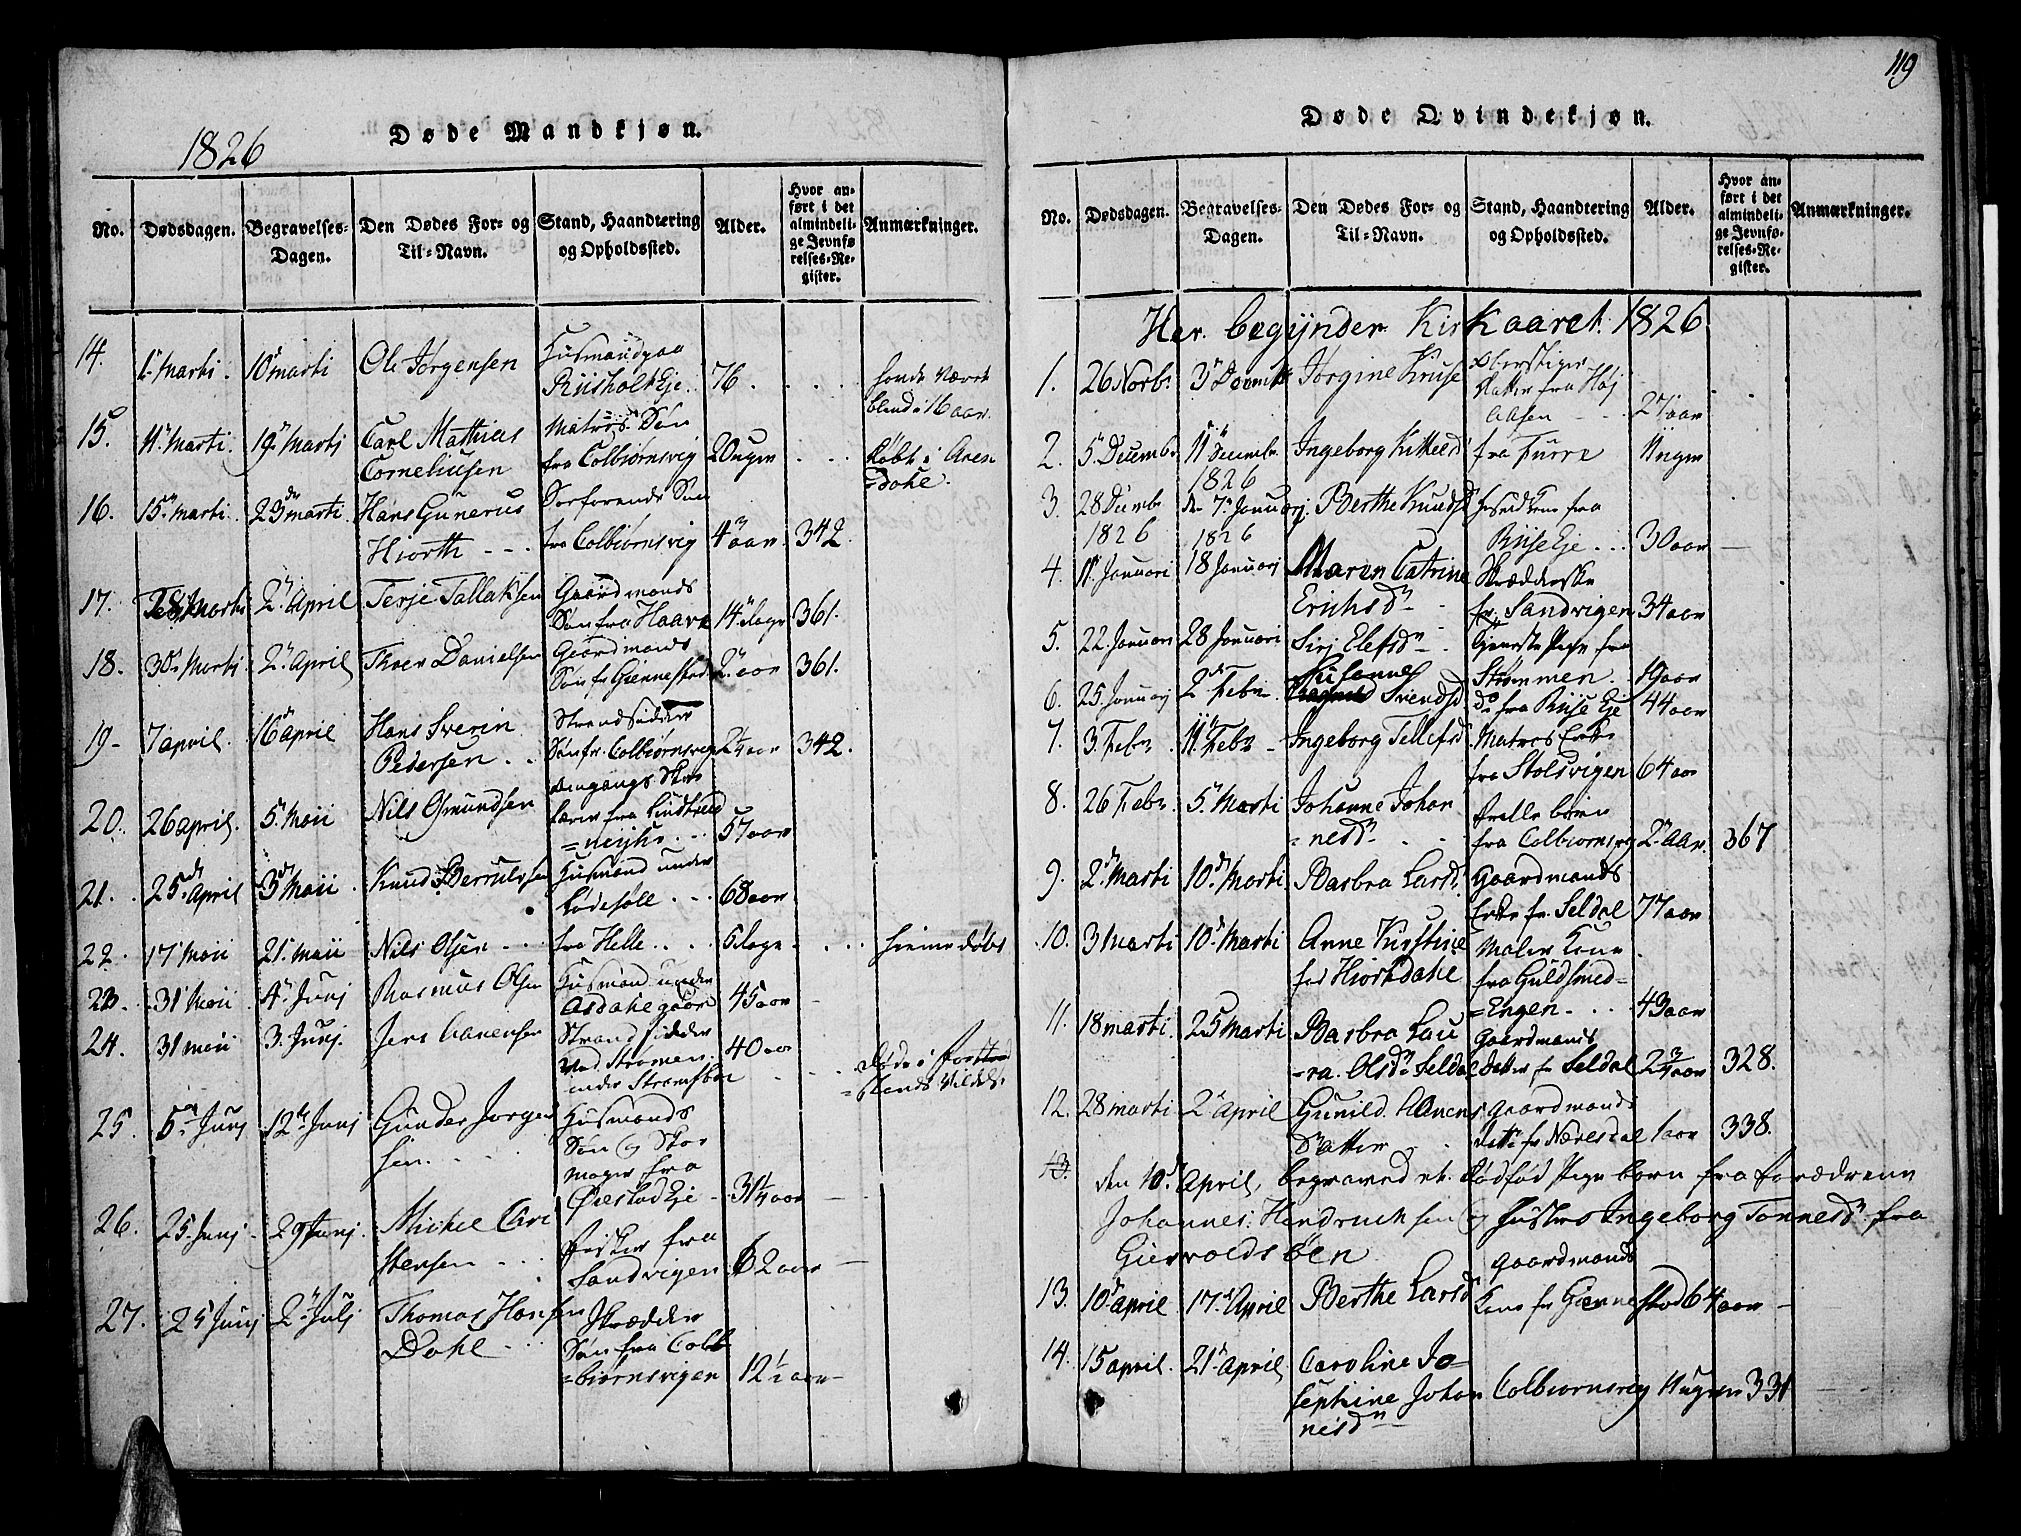 119
1826
Døde Mandkjøn.
No.
Dødsdagen.
Begravelses-
Dagen.
Den Dødes For- og
Til-Navn.
Stand, Haandtering
og Opholdssted.
Alder.
Hvor an-
ført i det
almindeli-
ge Jevnfø-
relses-Re-
gister.
Anmærkninger.
14. 1 Marti. 10 marti Ole Jørgensen Husmand paa
Riisholt Eje. 76. havde været
blend i 16 aar.
15. 11 Marti. 19 Marti Carl Mathias Matros Søn
Corneliusen fra Colbiørnsvig 20 ugen Døbt i Aren
=dahl.
16. 15 Marti. 23 marti. Hans Gunerus Søn
Hiorth - - - fra Colbiørnsvig 4 aar. 342.
17. 28 Marti 2 April Terje Tallaksen Gaardmands
Søn fra Haave 14 dage 361.
18. 30 Marti 2 April Thoer Danielsen Gaardmands
Søn fr Giennestad 2 aar 361.
19- 7 april. 16 april Hans Sverin Strandsidder
Pedersen . . Søn fr. Colbiørnsvig aar 342.
20. 26 april. 5 Maii Nils Osmundsen Omgangs Skoe
Lærer fra
57 aar
21. 25 April 3 Maii. Knud Berrulvsen Husmand under
Lødesøll . . . 68 aar
22. 17 Maii 21 Maii Nils Olsen . . . fra Helle . . . 6 dage hieme døbt
23. 31 Maii 4 Junj Rasmus Olsen Husmand under
Asdahl gaard 45 aar
24. 31 maii 3. Junj. Jens Aanensen Strand sidder
ved Strømen 40 aar
under Strømsboe
Døde i
25. 5 Junj 12 Junj Gunder Jørgen Husmands
sen. . . . Søn og Skoe
mager fra
Øiestad Eje - 31 aar
26. 25 Junj 29 Junj. Michel Chri
stensen . . . Fisker fra
Sandvigen 62 aar
27. 25 Junj 2 Julj Thomas Hansen Skrædder
Dahl . . Søn fra Colb
=biørnsvigen 12½ aar
Døde Qvindekjøn.
No.
Dødsdagen.
Begravelses-
Dagen.
Den Dødes For- og
Til-Navn.
Stand, Haandtering
og Opholdssted.
Alder.
Hvor an-
ført i det
almindeli-
ge Jevnfø-
relses-Re-
gister.
Anmærkninger.
Her begynder Kirkaaret 1826
1. 26 Novbr. 3 Decembr Jørgine Kruse Oberstiger
Datter fra Høj
aasen 2 aar
2. 5 Decembr 11 Decembr Ingeborg Kittelsd fra Furre 11 ugen
1826
3. 28 Decembr den 7 Januarj. Berthe Knudsd fra
1826 1826 Riise Eje . . . 30 aar
4. 11 Januari 18 Januarj Maren Catrine Skrædderske
Erichsd fr. Sandvigen 34 aar
5. 22 Januari 28 Januari Sirj Elefsd Tjeneste Pige fra
Strømmen. 19 aar
6. 25 Januarj 2 Febr. Susanne Svendsd do fra Riise Eje 44 aar
7. 3. Febr. 11 Febr - Ingeborg Tellefsd Matros Enke
fra Stolsvigen 64 aar
8. 26 Febr. 5 Marti Johanne Johan
=nesd fra Colbiornsvig 2 Aar. 367
9. 2 Marti 10 Marti Barbra Larsd Gaardmands
Enke fr. Seldal 77 aar
10. 3 Marti 10 Marti Anne Kirstine Maler Kone
fød Hiorthdahl fra Guldsmed=
=Engen. . . . 43 aar
11. 18 marti 25 Marti Barbra Lau Gaardmands
=ra. Olsd Seldal datter fr Seldal 2 aar 328.
12. 28 marti 2 April Gunild Aanens Gaardmands
Datter dattr fr Nærestad 1 aar 338.
13. den 10 April, begraved et Dødfød Pige barn fra forældrene
Johannes Hendrichsen og Hustro Ingeborg Tønnesd fra
Giervoldsøen.
13. 10 april 17 April Berthe Larsd Gaardmands
Kone fr Giennestad 64 aar -
14. 15 april. 21 April Caroline Jo=
sephine Johan Colbiornsvig 11 ugen 331
nesd